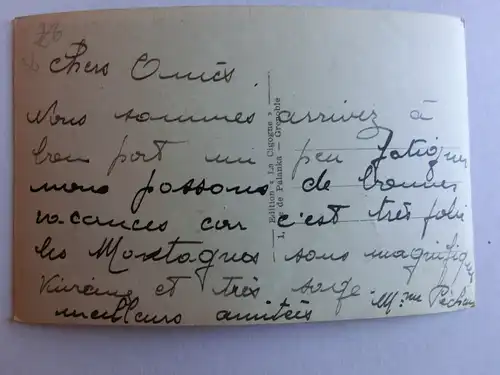 28
Chers Amies.
Nous sommes arrivez à
bon port un peu fatiguer
nous passons de bonnes
vacances car c'est très jolie
les Montagnes sons magnifique
Viviane et très sage.
meilleurs amitiés
Mme
Edition « La Cigogne »
de Palanka — Grenoble